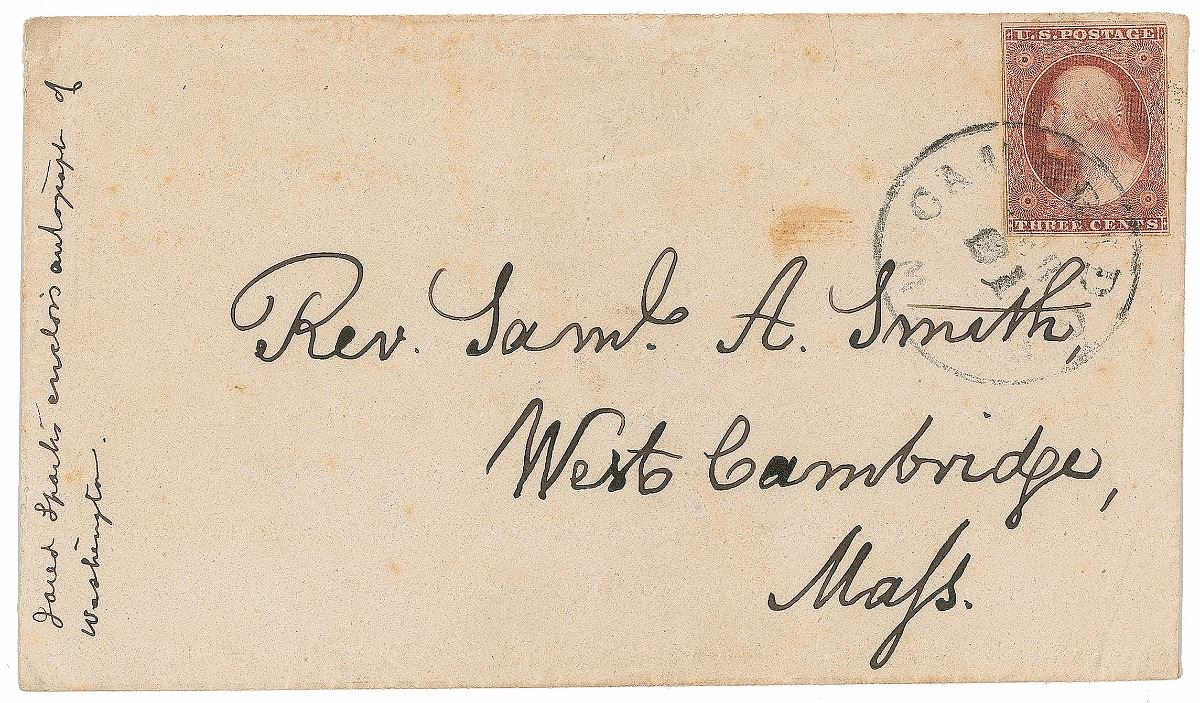 U.S. POSTAGE
THREE CENTS
CAM
Rev. Saml. A. Smith,
West Cambridge,
Mass.
Jared Sparks enclosis autograph of
Washington.